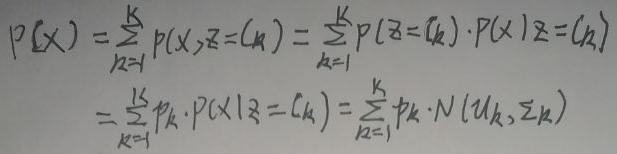 P(x) = ∑_{k=1}^{K} P(x, z=C_k) = ∑_{k=1}^{K} P(z=C_k) · P(x|z=C_k)
= ∑_{k=1}^{K} p_k · P(x|z=C_k) = ∑_{k=1}^{K} p_k · N(μ_k, Σ_k)